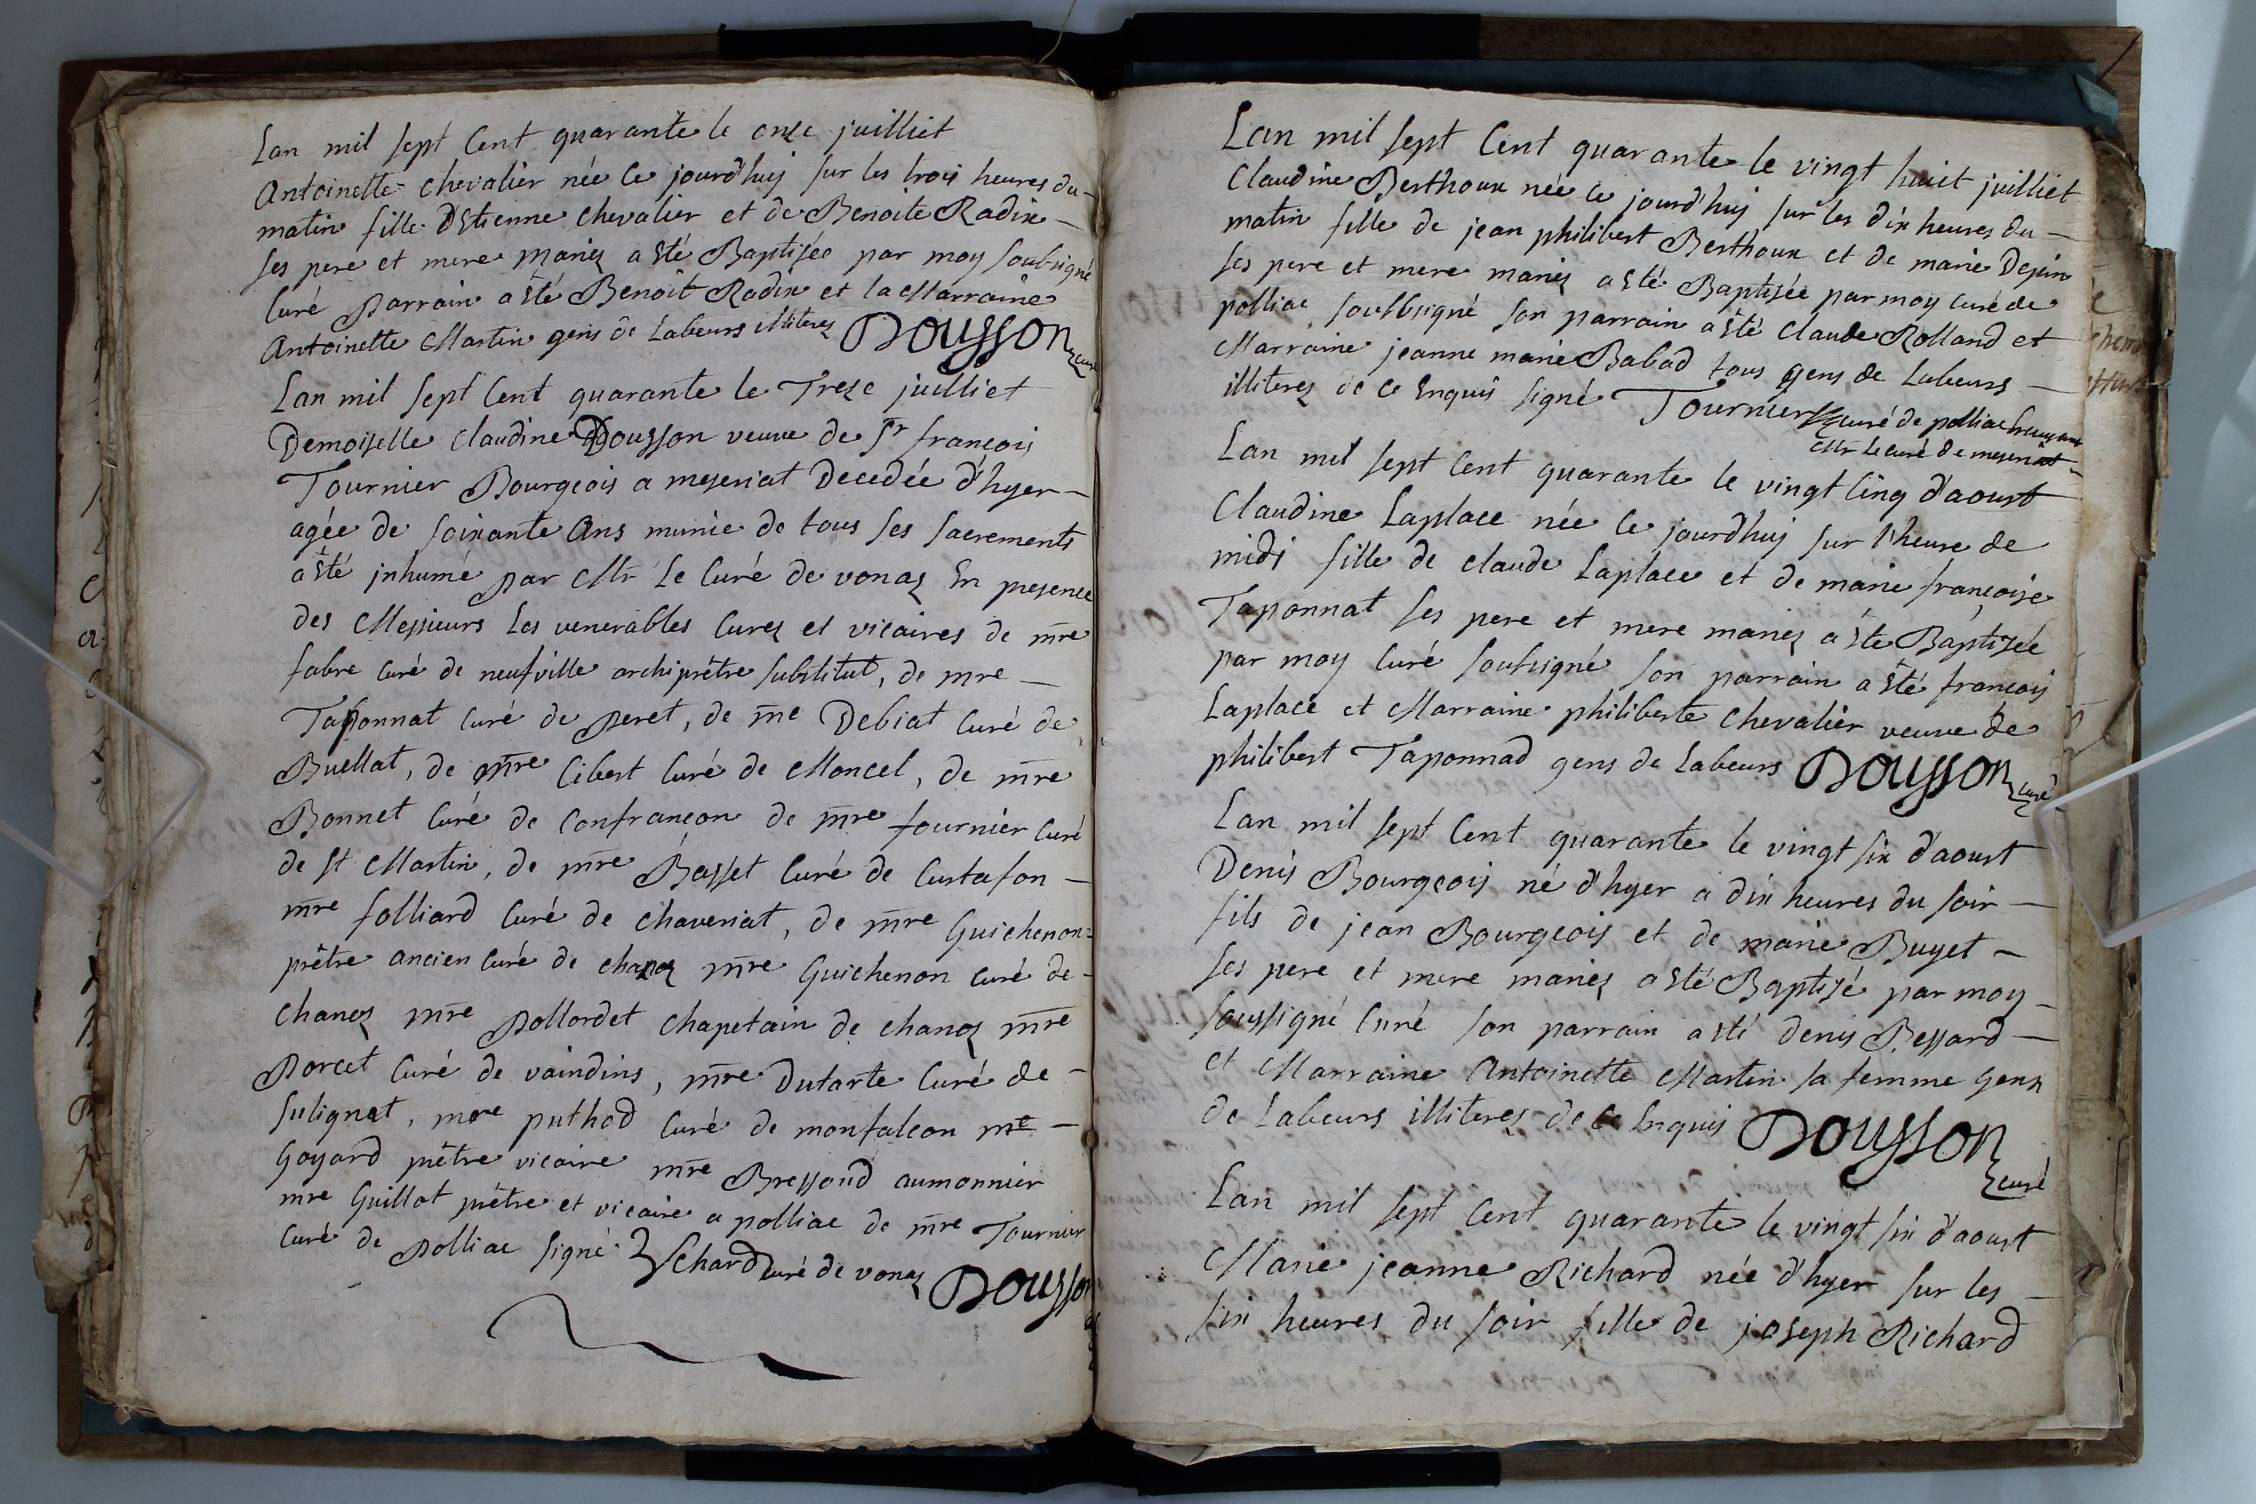 Lan mil sept Cent quarante le onze juilliet
Antoinette chevalier née Ce jourd'huy sur les trois heures du
matin fille d'Etienne chevalier et de Benoite Radix
ses pere et mere mariez a été Baptisée par moy soubsigné
Curé Parrain a été Benoit Radix et la Marraine
Antoinette Martin gens de Labeurs illiterez Dousson curé
Lan mil sept Cent quarante le Treze juilliet
Demoiselle Claudine Dousson veuve de Sr françois
Tournier Bourgeois a mezeriat Decedée d'hyer
agée de soixante Ans munie de tous ses sacrements
a été jnhumé par Mr Le Curé de vonaz En presence
des Messieurs Les venerables Curez et vicaires de mre
fabre Curé de neufville archiprêtre substitut, de mre
Taponnat Curé de Peret, de mre Debiat Curé de
Buellat, de mre Cibert Curé de Moncel, de mre
Bonnet Curé de Confrançon de mre fournier Curé
de St Martin, de mre Basset Curé de Curtafon
mre folliard Curé de Chaveriat, de mre Guichenon
prêtre ancien Curé de chanoz mre Guichenon Curé de
Chanoz mre Pollordet chapelain de chanoz mre
Porcet Curé de vaindins, mre Dutarte Curé de
Sulignat, mre puthod Curé de monfalcon mre
Goyard prêtre vicaire mre Bressoud aumonnier
mre Guillot prêtre et vicaire a polliac de mre Tournier
Curé de Polliac signé Echard curé de vonaz Dousson
Lan mil sept Cent quarante le vingt huit juilliet
Claudine Berthoux née Ce jourd'huy sur les dix heures du
matin fille de jean philibert Berthoux et de marie Depin
ses pere et mere mariez a été Baptizée par moy Curé de
polliac soubsigné son parrain a été Claude Rolland et
Marraine jeanne marie Babad tous gens de Labeurs
illiterez de Ce Enquis signé Tournier curé de polliac
Mr Le curé de mezeriat
Lan mil sept Cent quarante le vingt Cinq d'aoust
Claudine Laplace née Ce jourd'huy sur l'heure de
midi fille de claude Laplace et de marie françoise
Taponnat ses pere et mere mariez a été Baptizée
par moy Curé soubsigné son parrain a été françois
Laplace et Marraine philiberte Chevalier veuve de
philibert Taponnad gens de Labeurs Dousson curé
Lan mil sept Cent quarante le vingt six d'aoust
Denis Bourgeois né d'hyer a dix heures du soir
fils de jean Bourgeois et de marie Buget
ses pere et mere mariez a été Baptizé par moy
soussigné Curé son parrain a été denis Bessard
et Marraine Antoinette Martin sa femme gens
de Labeurs illiterez de Ce Enquis Dousson curé
Lan mil sept Cent quarante le vingt six d'aoust
Marie jeanne Richard née d'hyer sur les
six heures du soir fille de joseph Richard